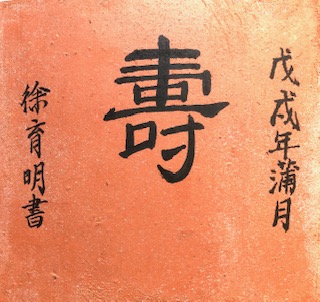 戊戌年蒲月
壽
徐育明書